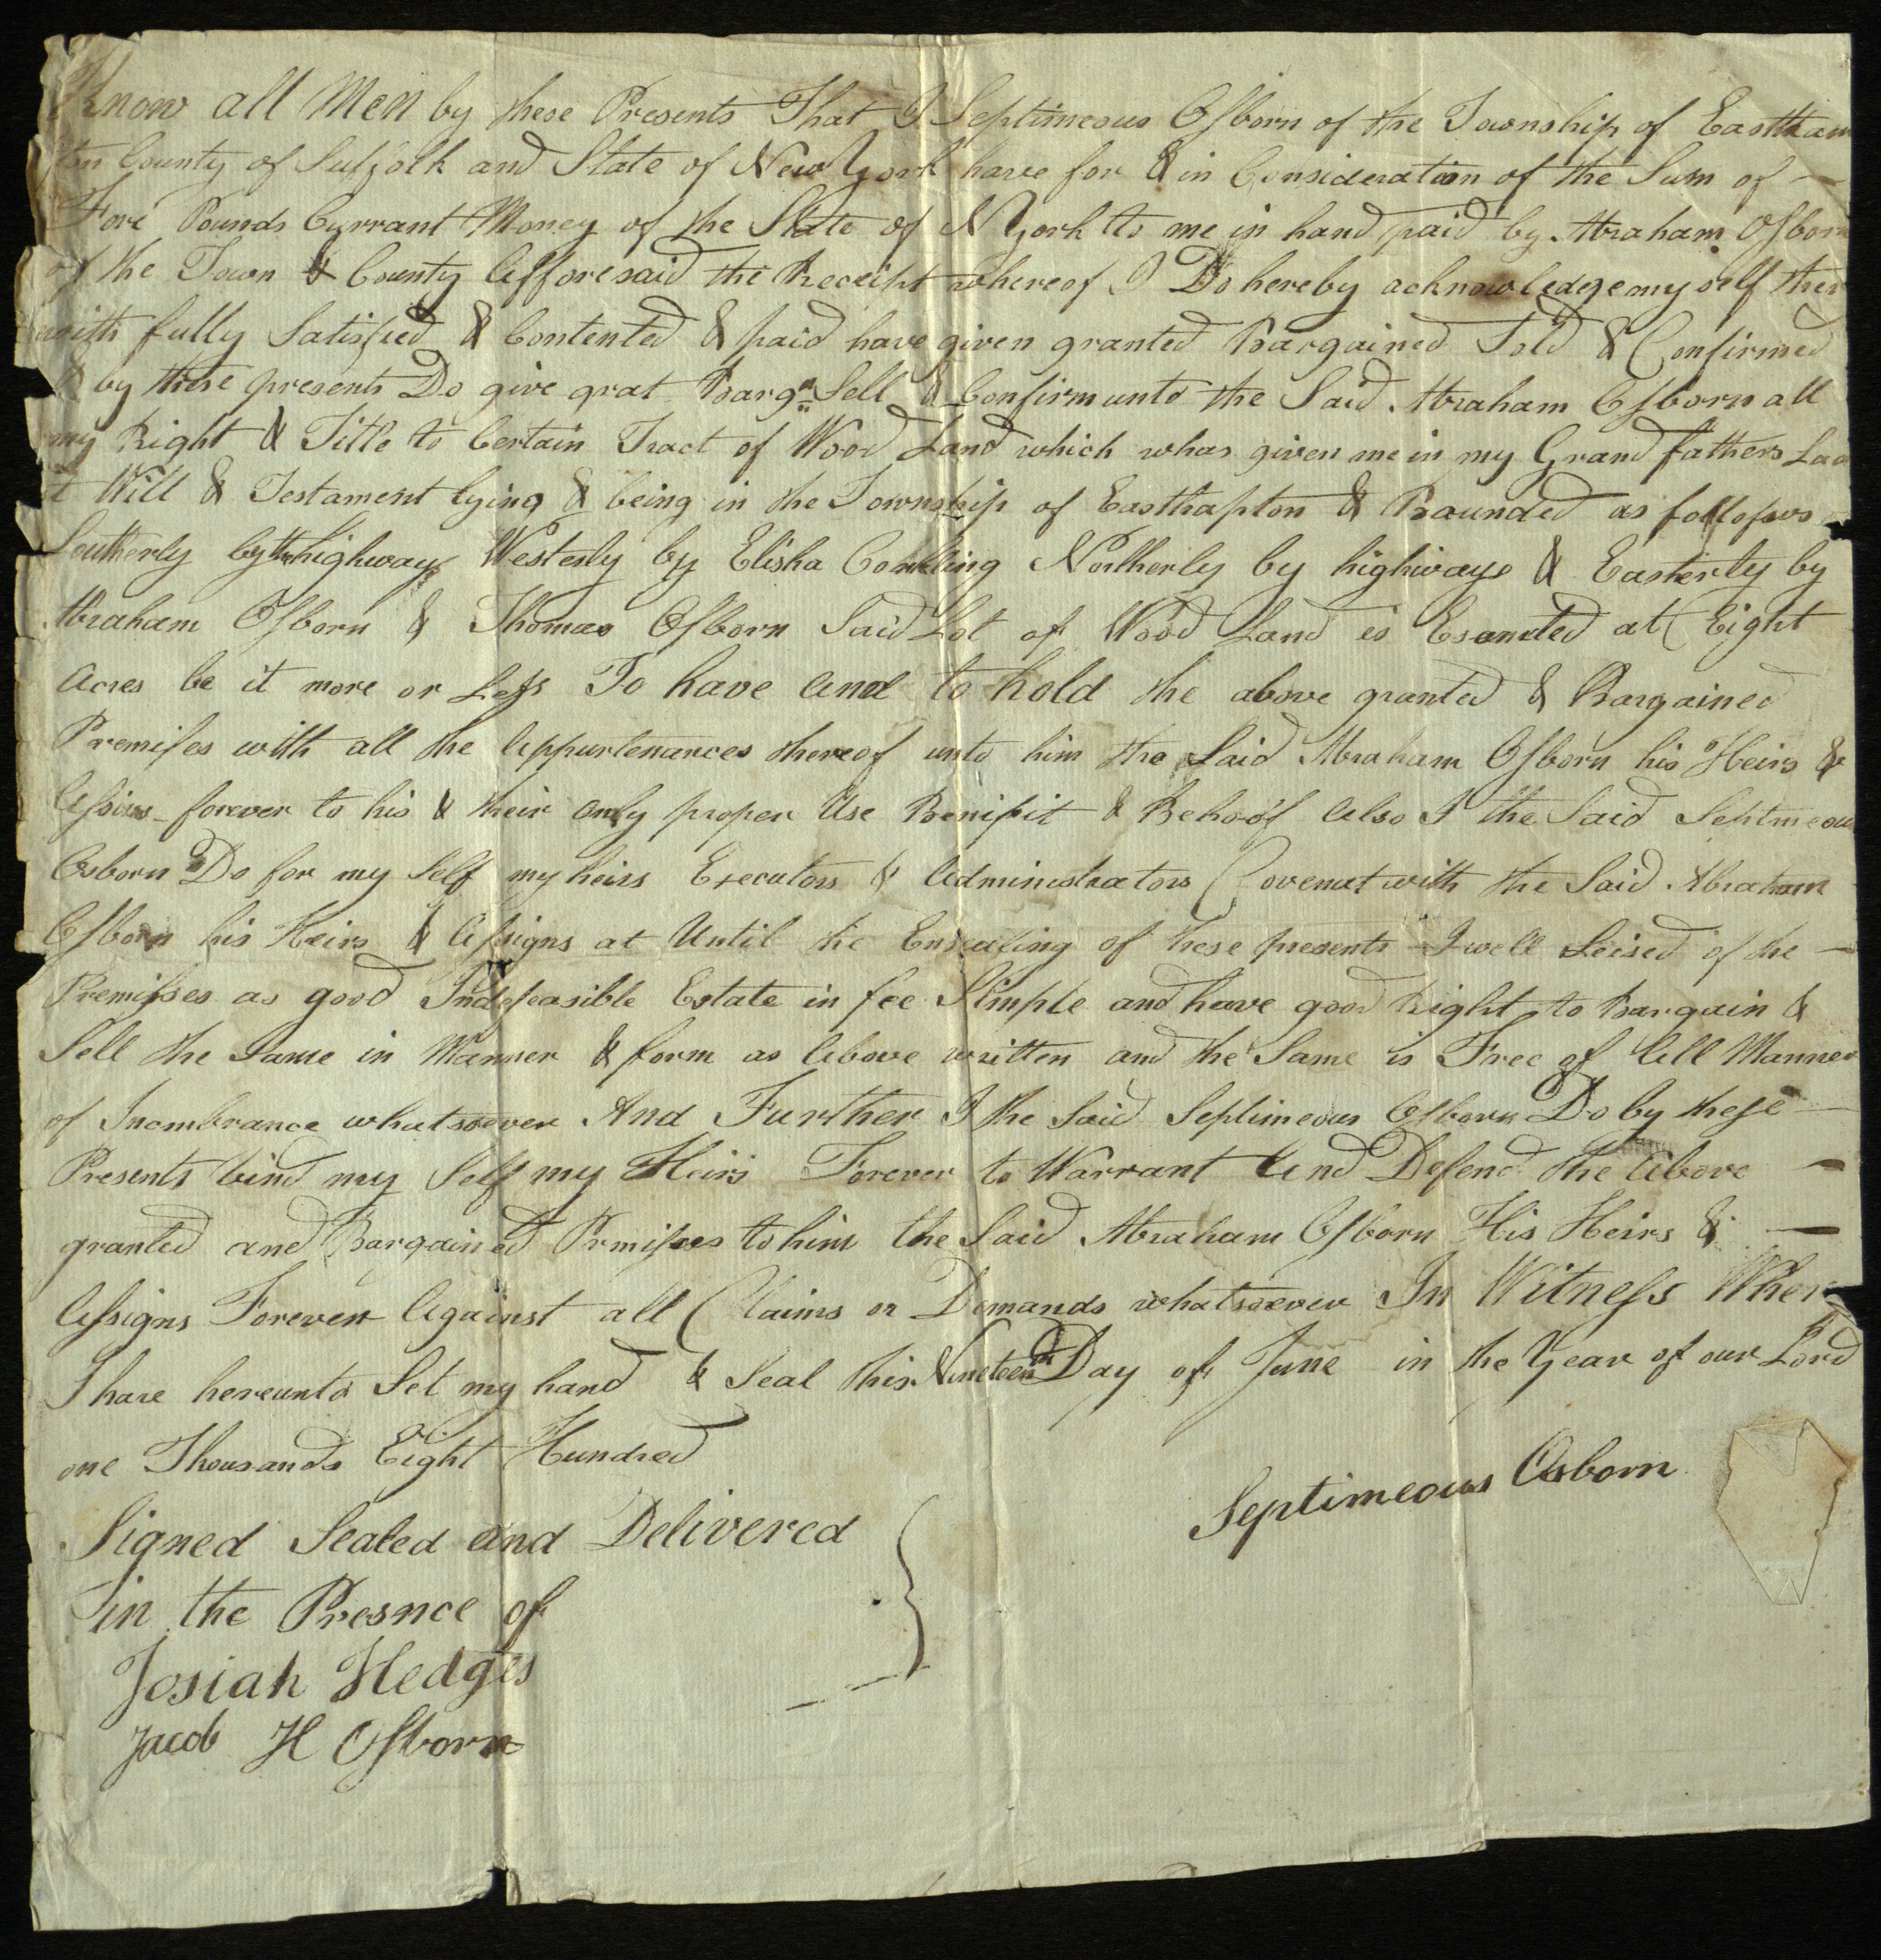 Know all Men by these Presents That I Septimeous Osborn of the Township of Eastham
ton County of Suffolk and State of New York have for & in Consideration of the Sum of —
Fore Pounds Currant Money of the State of N York to me in hand paid by Abraham Osborn
of the Town & County Afforesaid the Receipt whereof I Do hereby acknowledge my self ther
with fully Satisfied & Contented & paid have given granted Bargained Sold & Confirmed
& by these presents Do give grat Bargn Sell & Confirm unto the Said Abraham Osborn all
my Right & Title to Certain Tract of Wood Land which whas given me in my Grand fathers Las
t Will & Testament lying & being in the Township of Easthapton & Baunded as follows
Southerly by the highway Westerly by Elisha Conkling Northerly by highways & Easterly by
Abraham Osborn & Thomas Osborn Said Lot of Wood Land is at Eight
Acres be it more or Less To have and to hold the above granted & Bargained
Premises with all the Appurtenances thereof unto him the Said Abraham Osborn his Heirs &
Assins forever to his & their only proper Use Benifit & Behoof Also I the Said Septmeous
Osborn Do for my Self my heirs Executors & Administrators Covenat with the Said Abraham
Osborn his Heirs & Assigns at Until the Ensealing of these presents I well Seised of the —
Premisses as good Indefeasible Estate in fee Simple and have good Right to Bargain &
Sell the Same in Manner & form as Above written and the Same is Free of All Manner
of Incmbrance whatsoever And Further I the Said Septimeous Osborn Do by these —
Presents bind my Self my Heirs Forever to Warrant And Defend the Above —
granted and Bargained Prmises to him the Said Abraham Osborn His Heirs & —
Assigns Forever Against all Claims or Demands whatsoever In Witness Wher
I have hereunto Set my hand & Seal this Nineteenth Day of June in the Year of our Lord
one Thousands Eight Hundred
Septimeous Osborn
Signed Sealed and Delivered
in the Presnce of
Josiah Hedges
Jacob H Osborn